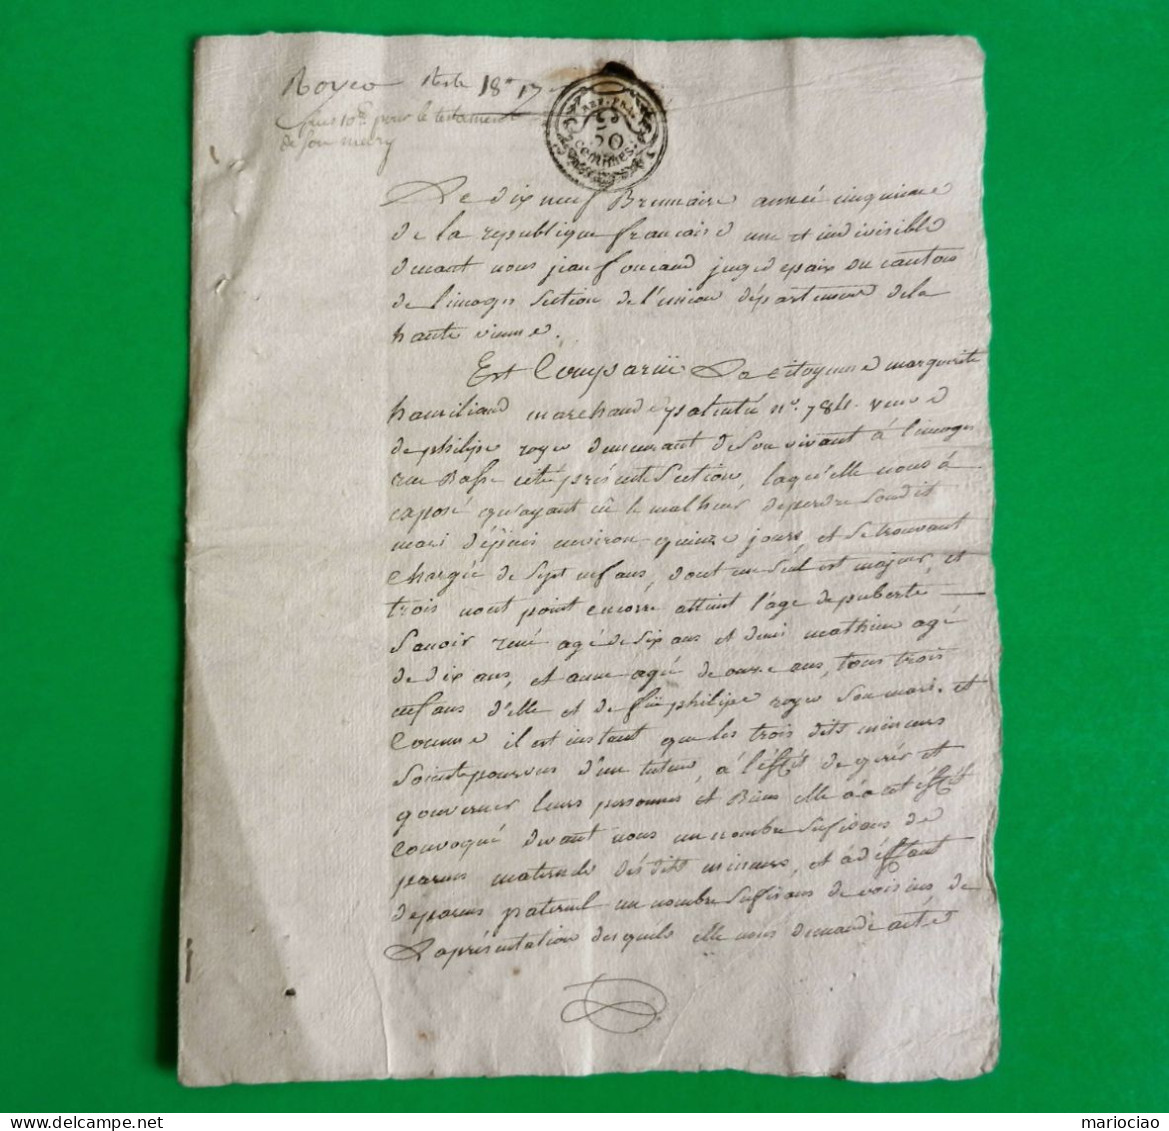 Royer
18
pour le testament
de
REP. FRA.
50
centimes
Le dix neuf Brumaire année cinquieme
de la republique francaise une et indivisible
devant nous jean foucaud juge de paix du canton
de limoges Section de l'union département de la
haute vienne.
Est Comparüe La citoyenne marguerite
marchande patentée n°. 784. veuve
de philipe royer demeurant de son vivant à limoges
rue Basse cité présente Section, laquelle nous à
exposé qu'ayant eû le malheur de perdre Soudit
mari dépuis environ quinze jours, et se trouvant
chargée de sept enfans, dont un seul est majeur, et
trois n'ont point encorre attint l'age de puberte —
Savoir rené agé de six ans et demi mathieu agé
de dix ans, et anne agée de onze ans, tous trois
enfans d'elle et de füe philipe royer son mari. et
Comme il est instant que les trois dits mineurs
soient pourvus d'un tuteur, à l'éffét de gérér et
gouverner leurs personnes et Biens elle à à cet éffét
Convoqué devant nous un nombre sufisans de
parens maternels dés dits mineurs, et à déffaut
de parens paternel un nombre suffisans de voisins de
Laprésentation des quels elle nous demande acte
mariociao